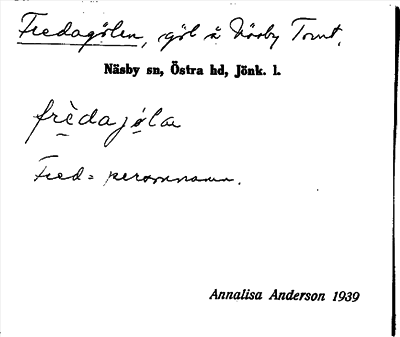 Fredagölen, göl å Näsby Tomt.
Näsby sn, Östra hd, Jönk. l.
frèdajøla
Fred = personnamn.
Annalisa Anderson 1939